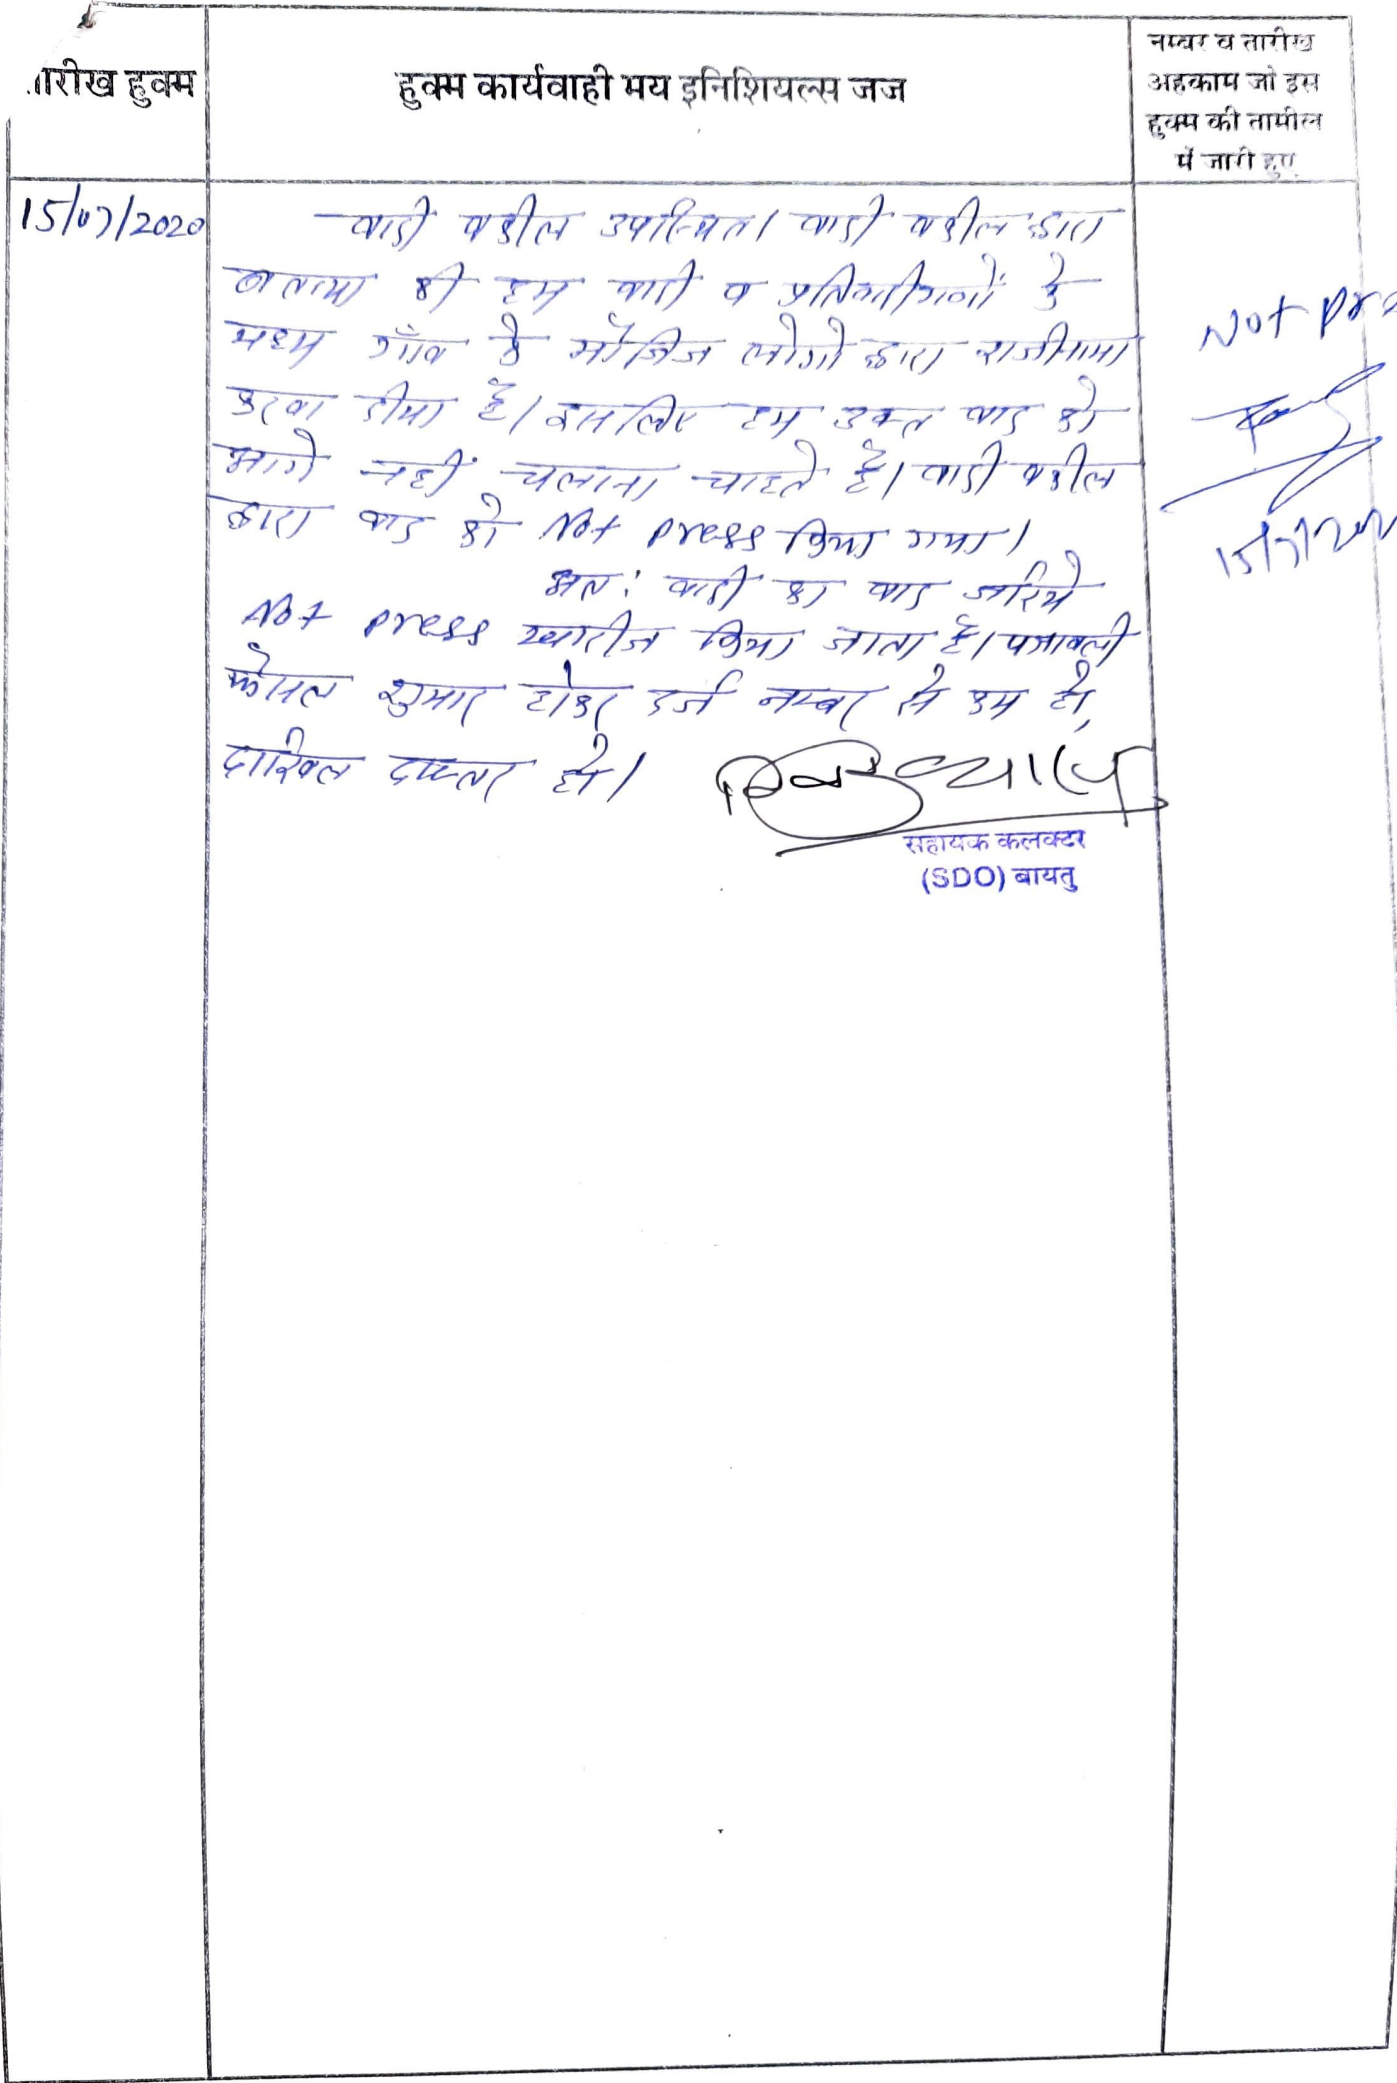 तारीख हुक्म
हुक्म कार्यवाही मय इनिशियल्स जज
नम्बर व तारीख
अहकाम जो इस
हुक्म की तामील
में जारी हुए
15/07/2020
वादी वकील उपस्थित। वादी वकील द्वारा
बताया की हम वादी व प्रतिवादीगणों के
मध्य गाँव के मौजिज लोगो द्वारा राजीनामा
करवा दीया है। इसलिए हम उक्त वाद को
आगे नहीं चलाना चाहते है। वादी वकील
द्वारा वाद को Not press किया गया।
अतः वादी का वाद जरिये
Not press खारीज किया जाता है। पत्रावली
फैसल शुमार होकर दर्ज नम्बर से कम हो,
दाखिल दफ्तर हो।
सहायक कलक्टर
(SDO) बायतु
Not pre
15/7/2020